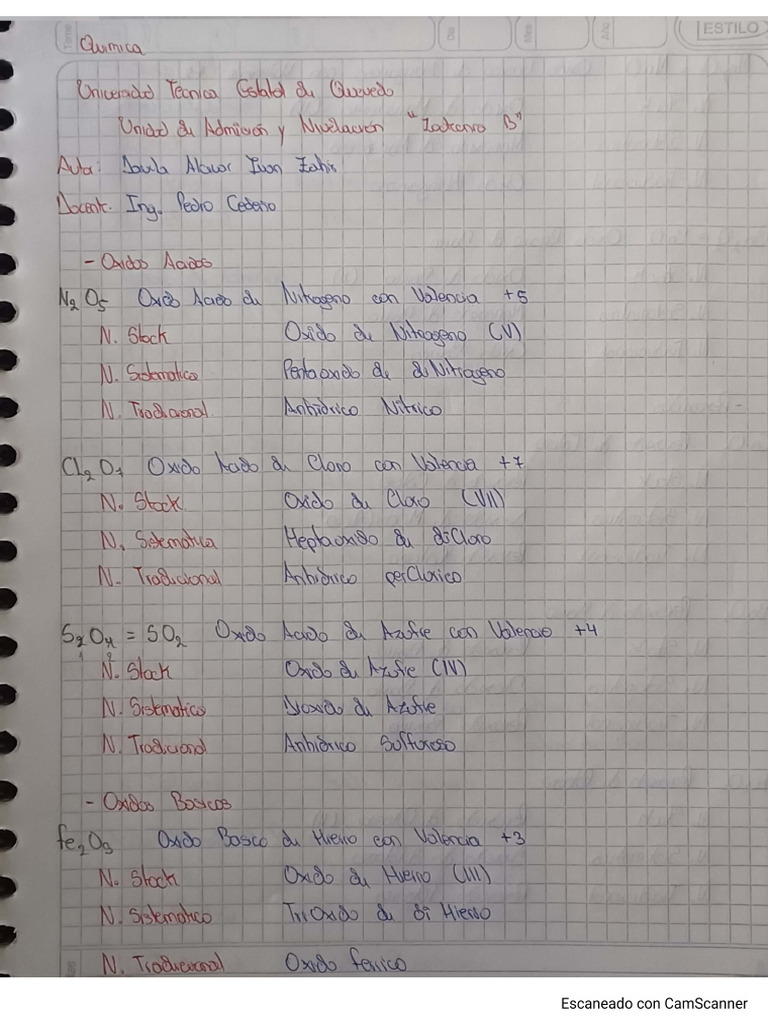 Tema
Dia
Mes
Año
ESTILO
Quimica
Universidad Tecnica Estatal de Quevedo
Unidad de Admision y Nivelación "B"
Aula:
Docente: Ing. Pedro Cedeño
- Oxidos Acidos
N2 O5 Oxido Acido de Nitrogeno con Valencia +5
N. Stock Oxido de Nitrogeno (V)
N. Sistematico Pentaoxido de diNitrogeno
N. Tradicional Anhidrico Nitrico
Cl2 O7 Oxido Acido de Cloro con Valencia +7
N. Stock Oxido de Cloro (VII)
N. Sistematica Heptaoxido de diCloro
N. Tradicional Anhidrico perClorico
S2O4 = SO2 Oxido Acido de Azufre con Valencia +4
N. Stock Oxido de Azufre (IV)
N. Sistematico Dioxido de Azufre
N. Tradicional Anhidrico Sulfuroso
- Oxidos Basicos
Fe2O3 Oxido Basico de Hierro con Valencia +3
N. Stock Oxido de Hierro (III)
N. Sistematico TriOxido de di Hierro
N. Tradicional Oxido ferrico
Escaneado con CamScanner